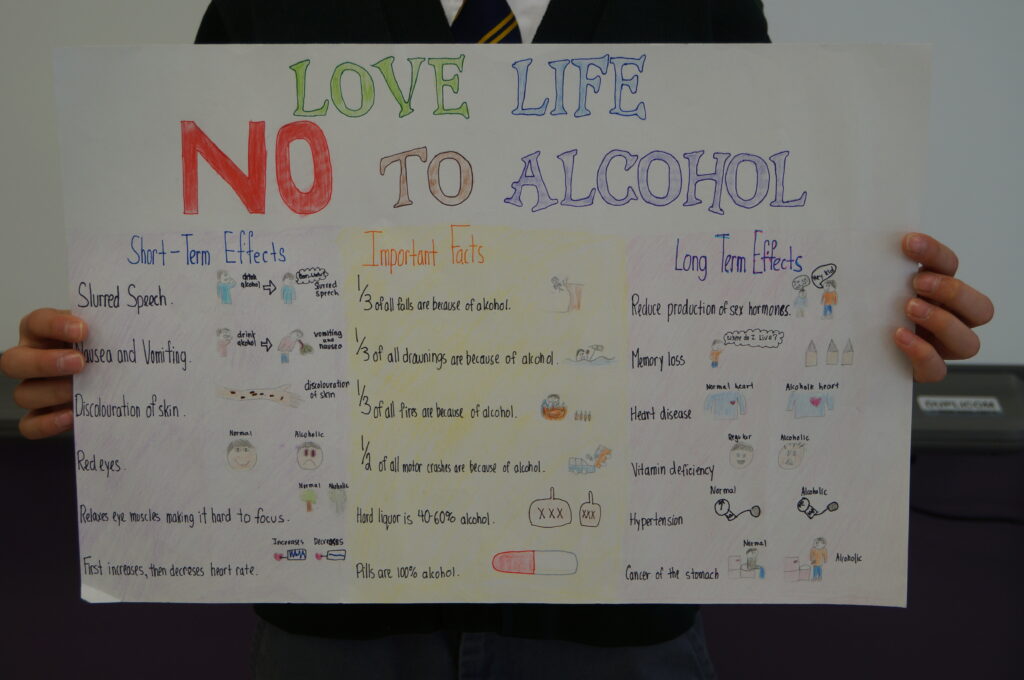 LOVE LIFE
NO TO ALCOHOL
Short-Term Effects
Slurred Speech.
drink alcohol
Slurred speech
Nausea and Vomiting.
drink alcohol
vomiting and nausea
Discolouration of skin.
discolouration of skin
Red eyes.
Normal
Alcoholic
Relaxes eye muscles making it hard to focus.
Normal
Alcoholic
First increases, then decreases heart rate.
Increases
Decreases
Important Facts
1/3 of all falls are because of alcohol.
1/3 of all drownings are because of alcohol.
1/3 of all fires are because of alcohol.
1/2 of all motor crashes are because of alcohol.
Hard liquor is 40-60% alcohol.
XXX
XXX
Pills are 100% alcohol.
Long Term Effects
Reduce production of sex hormones.
Hey Kid
Memory loss
Where do I live?
Heart disease
Normal heart
Alcoholic heart
Vitamin deficiency
Regular
Alcoholic
Hypertension
Normal
Alcoholic
Cancer of the stomach
Normal
Alcoholic